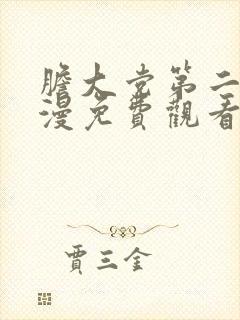 膽大党第二
漫免費觀看
賈三金